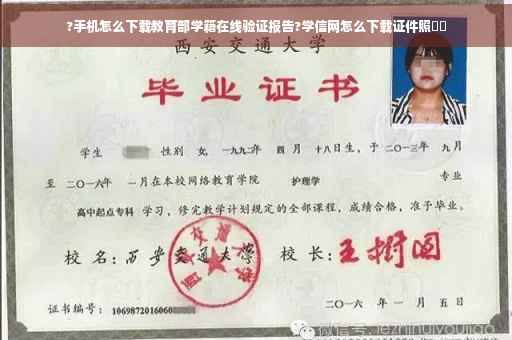 ?手机怎么下载教育部学籍在线验证报告?学信网怎么下载证件照
西安交通大学
毕业证书
学生 性别 女, 一九九二年 四月 十八日生, 于 二〇一三年 九月
至 二〇一六年 一月在本校网络教育学院 护理学 专业
高中起点专科 学习, 修完教学计划规定的全部课程, 成绩合格, 准予毕业。
校名: 西安交通大学 校长: 王树国
西安交通大学
证书编号: 1069872016060
二〇一六年 一月 五日
微信号: jezhinuiyoujiao